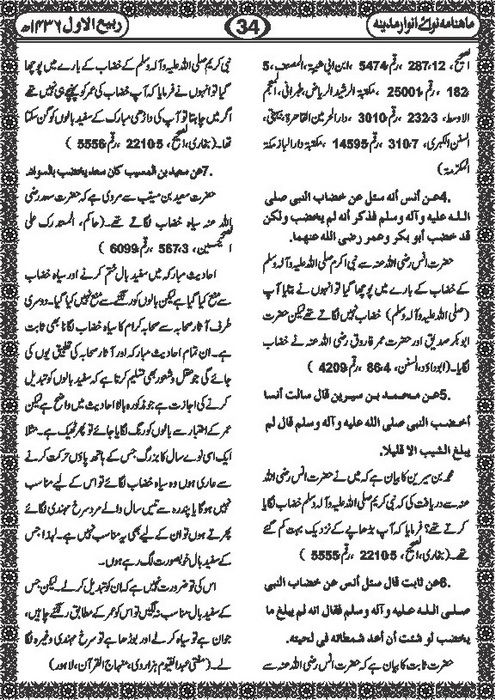 ماہنامہ نوائے انوار مدینہ
34
ربیع الاول ۱۴۳۶ھ
الصحیح، 287:12، رقم: 5474، ابن ابی شیبۃ، المصنف، 5:
182، رقم: 25001، مکتبۃ الرشید الریاض، طبرانی، المعجم
الاوسط، 232:3، رقم: 3010، دارالحرمین القاھرۃ، بیہقی،
السنن الکبری، 310:7، رقم: 14595، مکتبۃ دارالباز مکۃ
المکرمۃ)
4۔ عن أنس أنه سئل عن خضاب النبي صلى
الله عليه وآله وسلم فذكر أنه لم يخضب ولكن
قد خضب أبو بكر وعمر رضى الله عنهما.
حضرت انس رضی اللہ عنہ سے نبی اکرم صلی اللہ علیہ وآلہ وسلم
کے خضاب کے بارے میں پوچھا گیا تو انہوں نے بتایا آپ
(صلی اللہ علیہ وآلہ وسلم) خضاب نہیں لگاتے تھے لیکن حضرت
ابوبکر صدیق اور حضرت عمر فاروق رضی اللہ عنہ نے خضاب
لگایا۔ (ابوداؤد، السنن، 86:4، رقم: 4209)
5۔ عن محمد بن سيرين قال سألت أنسا
أخضب النبي صلى الله عليه وآله وسلم قال لم
يبلغ الشيب الا قليلا.
محمد بن سیرین کا بیان ہے کہ میں نے حضرت انس رضی اللہ
عنہ سے دریافت کی کہ نبی کریم صلی اللہ علیہ وسلم خضاب لگایا
کرتے تھے؟ فرمایا کہ آپ بڑھاپے کے نزدیک بہت کم گئے
تھے۔ (بخاری، الصحیح، 2210:5، رقم: 5555)
6۔ عن ثابت قال سئل أنس عن خضاب النبي
صلى الله عليه وآله وسلم فقال انه لم يبلغ ما
يخضب لو شئت أن أعد شمطاته في لحيته.
حضرت ثابت کا بیان ہے کہ حضرت انس رضی اللہ عنہ سے
نبی کریم صلی اللہ علیہ وآلہ وسلم کے خضاب کے بارے میں پوچھا
گیا تو انہوں نے فرمایا کہ آپ خضاب کی عمر کو پہنچے ہی نہیں تھے
اگر میں چاہتا تو آپ کی داڑھی مبارک کے سفید بالوں کو گن سکتا
تھا۔ (بخاری، الصحیح، 2210:5، رقم: 5556)
7۔ عن سعيد بن المسيب كان سعد يخضب بالسواد.
حضرت سعید بن مسیب سے مروی ہے کہ حضرت سعد رضی
اللہ عنہ سیاہ خضاب لگاتے تھے۔ (حاکم، المستدرک علی
الصحیحین، 567:3، رقم: 6099)
احادیث مبارکہ میں سفید بال ختم کرنے اور سیاہ خضاب
سے منع کیا گیا ہے لیکن بالوں کو رنگنے سے منع نہیں کیا گیا۔ دوسری
طرف آثار صحابہ سے صحابہ کرام کا سیاہ خضاب لگانا بھی ثابت
ہے۔ ان تمام احادیث مبارکہ اور آثار صحابہ کی تطبیق یوں کی
جائے گی جو عقل و شعور بھی تسلیم کرتا ہے کہ سفید بالوں کو تبدیل
کرنے کی اجازت ہے جو مذکورہ بالا احادیث میں واضح ہے لیکن
عمر کے اعتبار سے بالوں کو رنگ لگایا جائے تو پھر ٹھیک ہے۔ مثلا
ایک اسی نوے سال کا بزرگ جس کے ہاتھ پاؤں حرکت کرنے
سے عاری ہوں وہ سیاہ خضاب لگائے تو اس کے لیے مناسب
نہیں ہو گا یا پندرہ سے تیس سال والے مرد سرخ مہندی لگائے
پھرتے ہوں تو ان کے لیے بھی یہ مناسب نہیں ہے۔ لہذا جس
کے سفید بال خوبصورت لگ رہے ہوں۔
اس کی تو ضرورت نہیں ہے کہ ان کو تبدیل کرلے۔ لیکن جس
کے سفید بال مناسب نہ لگیں تو اس کو عمر کے مطابق رنگنے چاہیں،
جوان ہے تو سیاہ کرلے اور بوڑھا ہے تو سرخ مہندی وغیرہ لگا
لے۔ (مفتی عبدالقیوم ہزاروی، منہاج القرآن، لاہور)